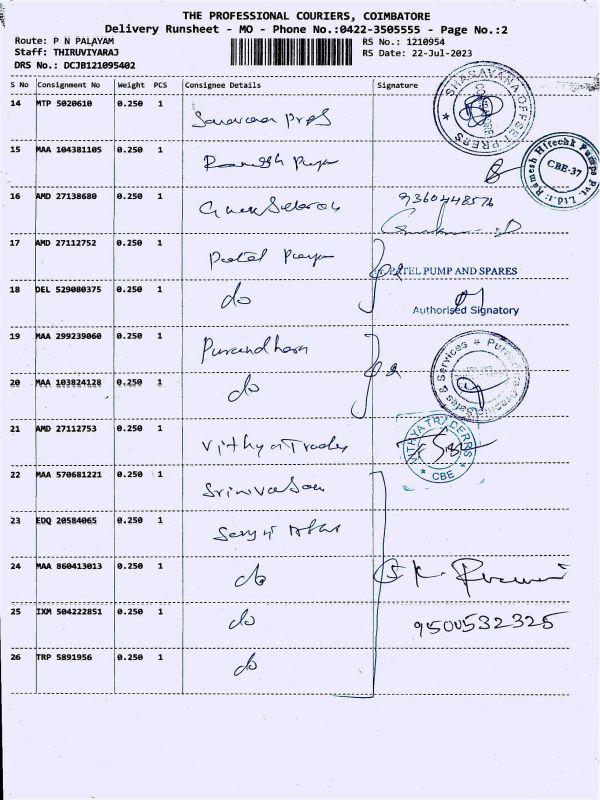 THE PROFESSIONAL COURIERS, COIMBATORE
Delivery Runsheet - MO - Phone No.:0422-3505555 - Page No.:2
Route: P N PALAYAM
Staff: THIRUVIYARAJ
DRS No.: DCJB121095402
RS No.: 1210954
RS Date: 22-Jul-2023
S No Consignment No Weight PCS Consignee Details Signature
14 MTP 5020610 0.250 1
SHARAVANA OFFSET PRESS
COIMBATORE
15 MAA 104381105 0.250 1
Ramesh Hitechk Pumps Pvt. Ltd.
CBE-37
16 AMD 27138680 0.250 1
9360448576
17 AMD 27112752 0.250 1 Patel Pump
PATEL PUMP AND SPARES
18 DEL 529080375 0.250 1 do
Authorised Signatory
19 MAA 299239060 0.250 1 Purandhara
Sales & Services
20 MAA 103824128 0.250 1 do
21 AMD 27112753 0.250 1 Vithya Trades
VITHYA TRADERRS
CBE
22 MAA 570681221 0.250 1 Srinivasan
23 EDQ 20584065 0.250 1
24 MAA 860413013 0.250 1 do
25 IXM 504222851 0.250 1 do
9500532325
26 TRP 5891956 0.250 1 do